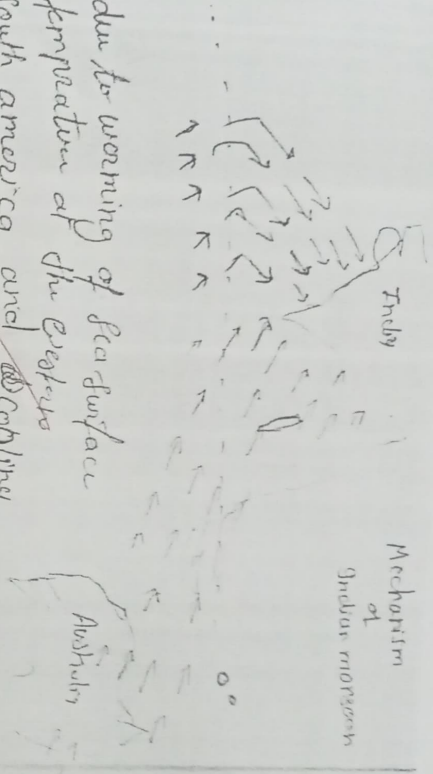 Mechanism
of
Indian monsoon
India
Australia
0°
due to worming of Sea Surface
temperature at the western
South america and cooling